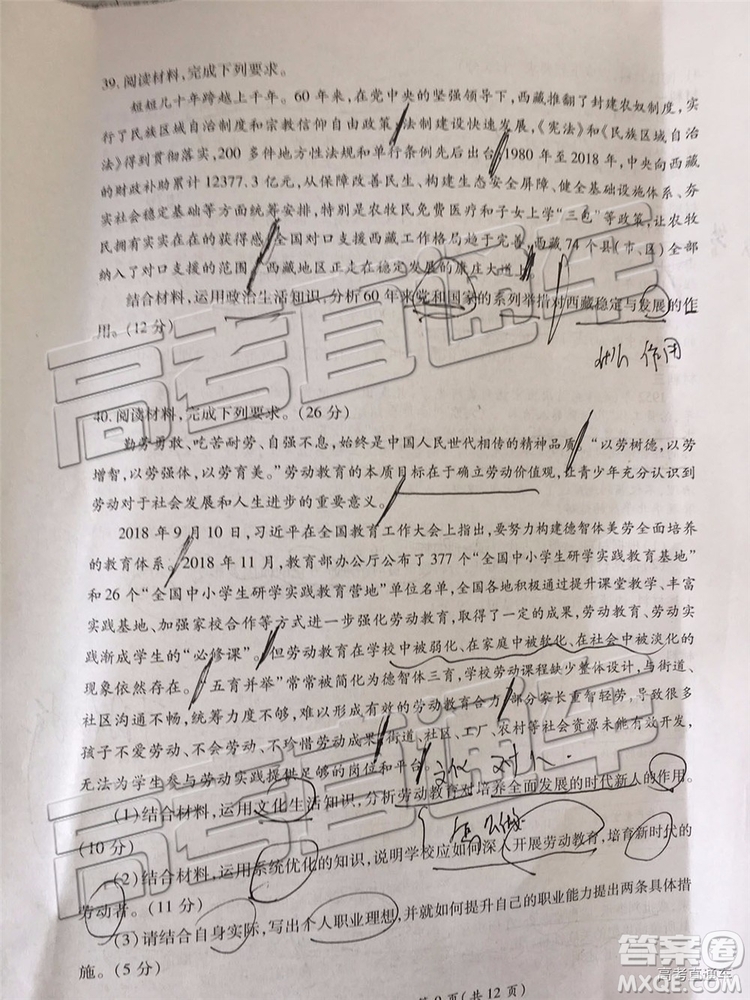 39. 阅读材料,完成下列要求。
短短几十年跨越上千年。60 年来,在党中央的坚强领导下,西藏推翻了封建农奴制度,实
行了民族区域自治制度和宗教信仰自由政策,法制建设快速发展,《宪法》和《民族区域自治
法》得到贯彻落实,200 多件地方性法规和单行条例先后出台,1980 年至 2018 年,中央向西藏
的财政补助累计 12377.3 亿元,从保障改善民生、构建生态安全屏障、健全基础设施体系、夯
实社会稳定基础等方面统筹安排,特别是农牧民免费医疗和子女上学“三包”等政策,让农牧
民拥有实实在在的获得感,全国对口支援西藏工作格局趋于完善,西藏 74 个县(市、区)全部
纳入了对口支援的范围,西藏地区正走在稳定发展的康庄大道上。
结合材料,运用政治生活知识,分析 60 年来党和国家的系列举措对西藏稳定与发展的作
用。(12 分)
作用
40. 阅读材料,完成下列要求。(26 分)
勤劳勇敢、吃苦耐劳、自强不息,始终是中国人民世代相传的精神品质。“以劳树德,以劳
增智,以劳强体,以劳育美。”劳动教育的本质目标在于确立劳动价值观,让青少年充分认识到
劳动对于社会发展和人生进步的重要意义。
2018 年 9 月 10 日,习近平在全国教育工作大会上指出,要努力构建德智体美劳全面培养
的教育体系。2018 年 11 月,教育部办公厅公布了 377 个“全国中小学生研学实践教育基地”
和 26 个“全国中小学生研学实践教育营地”单位名单,全国各地积极通过提升课堂教学、丰富
实践基地、加强家校合作等方式进一步强化劳动教育,取得了一定的成果,劳动教育、劳动实
践渐成学生的“必修课”。但劳动教育在学校中被弱化、在家庭中被软化、在社会中被淡化的
现象依然存在。“五育并举”常常被简化为德智体三育,学校劳动课程缺少整体设计,与街道、
社区沟通不畅,统筹力度不够,难以形成有效的劳动教育合力,部分家长重智轻劳,导致一些
孩子不爱劳动、不会劳动、不珍惜劳动成果,街道、社区、工厂、农村等社会资源未能有效开发,
无法为学生参与劳动实践提供足够的岗位和平台。
文化 对人
(1)结合材料,运用文化生活知识,分析劳动教育对培养全面发展的时代新人的作用。
(10 分)
(2)结合材料,运用系统优化的知识,说明学校应如何深入开展劳动教育,培育新时代的
劳动者。(11 分)
(3)请结合自身实际,写出个人职业理想,并就如何提升自己的职业能力提出两条具体措
施。(5 分)
第 9 页(共 12 页)
高考直通车
高考直通车
答案圈
MXQE.COM
高考直通车